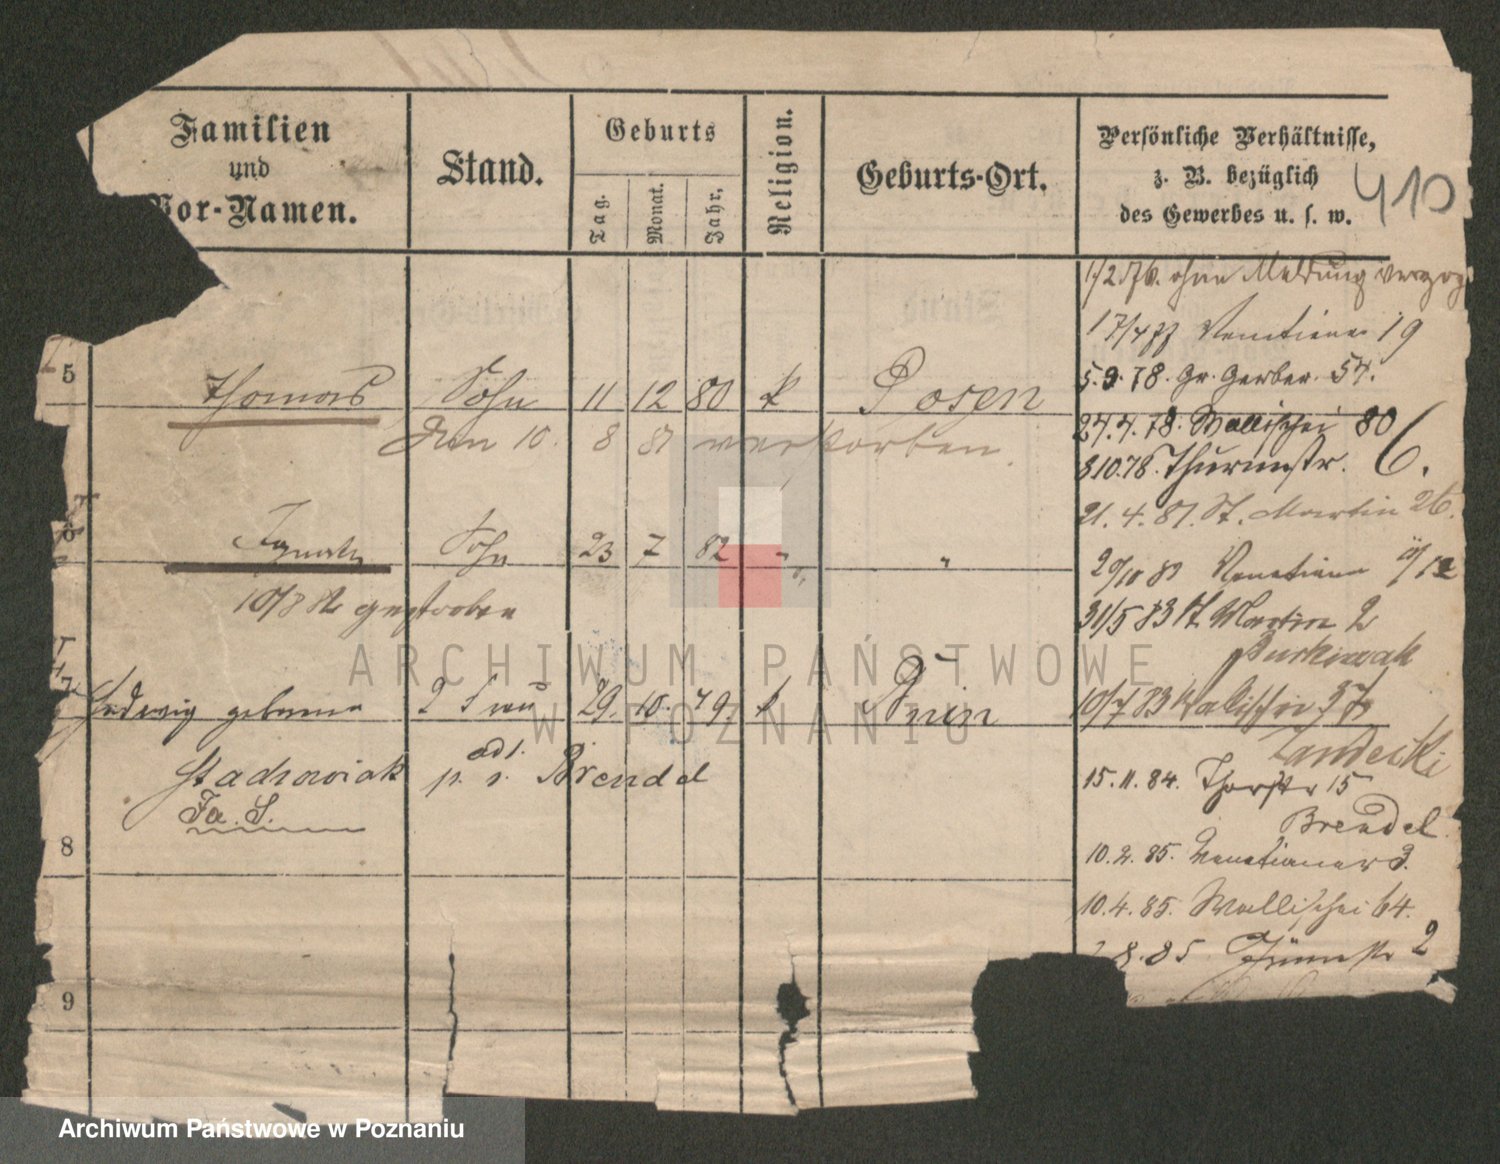 410
Familien
und
Vor-Namen.
Stand.
Geburts
Tag.
Monat.
Jahr.
Religion.
Geburts-Ort.
Persönliche Verhältnisse,
z. B. bezüglich
des Gewerbes u. s. w.
5
Thomas Sohn 11 12 80 k Posen
Den 10. 8 81 verstorben.
6
Ignatz Sohn 23 7 82 " "
10/8 82 gestorben
7
Hedwig geborene 2 Frau 29. 10. 49. k Znin
Stachowiak p. adr. Brendel
Fa. S.
8
9
1/2 76. ohne Meldung verzog
17/4 77 Venetianer 19
5.9.78. Gr. Gerber. 54.
24.4.78. Wallischei 80
8.10.78. Thurmstr. 6.
21.4.81. St. Martin 26.
20/10 82 Venetianer
31/5 83 St. Martin 2
10/7 83 Wallischei
15.11.84. Thorstr 15
Brendel
10.2.85. Venetianer 3.
10.4.85. Wallischei 64.
8.85. 2
ARCHIWUM PAŃSTWOWE
W POZNANIU
Archiwum Państwowe w Poznaniu